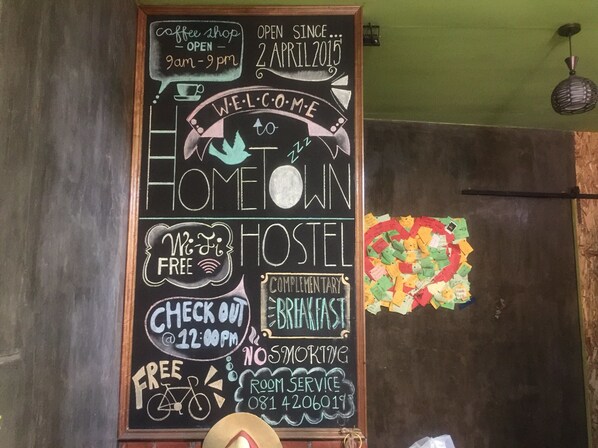 coffee shop
- OPEN -
9am - 9pm
OPEN SINCE...
2 APRIL 2015
W·E·L·C·O·M·E
to
zzz
HOMETOWN
HOSTEL
Wi-Fi
FREE
COMPLEMENTARY
BREAKFAST
CHECK OUT
@ 12:00PM
NO SMOKING
FREE
ROOM SERVICE
081 4206019